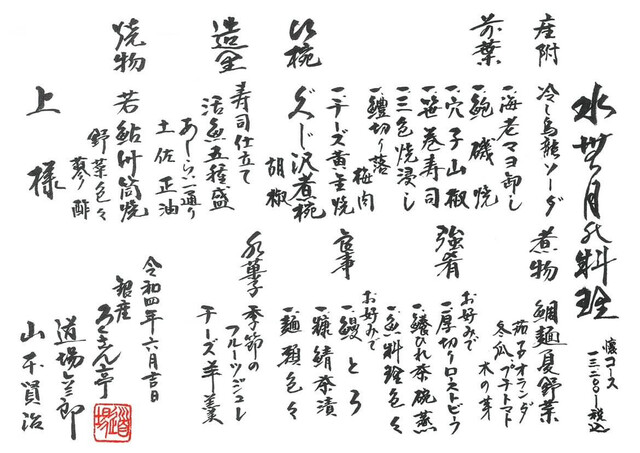 水無月の料理
懐コース
一三二〇〇ー税込
座附
冷し烏龍ソーダ
前菜
一、海老マヨ卸し
一、鮑磯焼
一、穴子山椒
一、笹巻寿司
一、三色焼浸し
一、鱧切り落
梅肉
一、チーズ黄金焼
吸椀
ぐじ沢煮椀
胡椒
造里
寿司仕立て
活魚五種盛
あしらい一通り
土佐正油
焼物
若鮎竹筒焼
野菜色々
蓼酢
上様
煮物
鯛麺夏野菜
茄子オランダ
冬瓜、プチトマト
木の芽
強肴
お好みで
一、厚切りローストビーフ
一、鱶ひれ茶碗蒸
一、魚料理色々
食事
お好みで
一、鰻とろ
一、糠鯖茶漬
一、麺類色々
水菓子
季節の
フルーツジュレ
チーズ羊羹
令和四年六月吉日
銀座
ろくさん亭
道場六三郎
山本賢治
道場